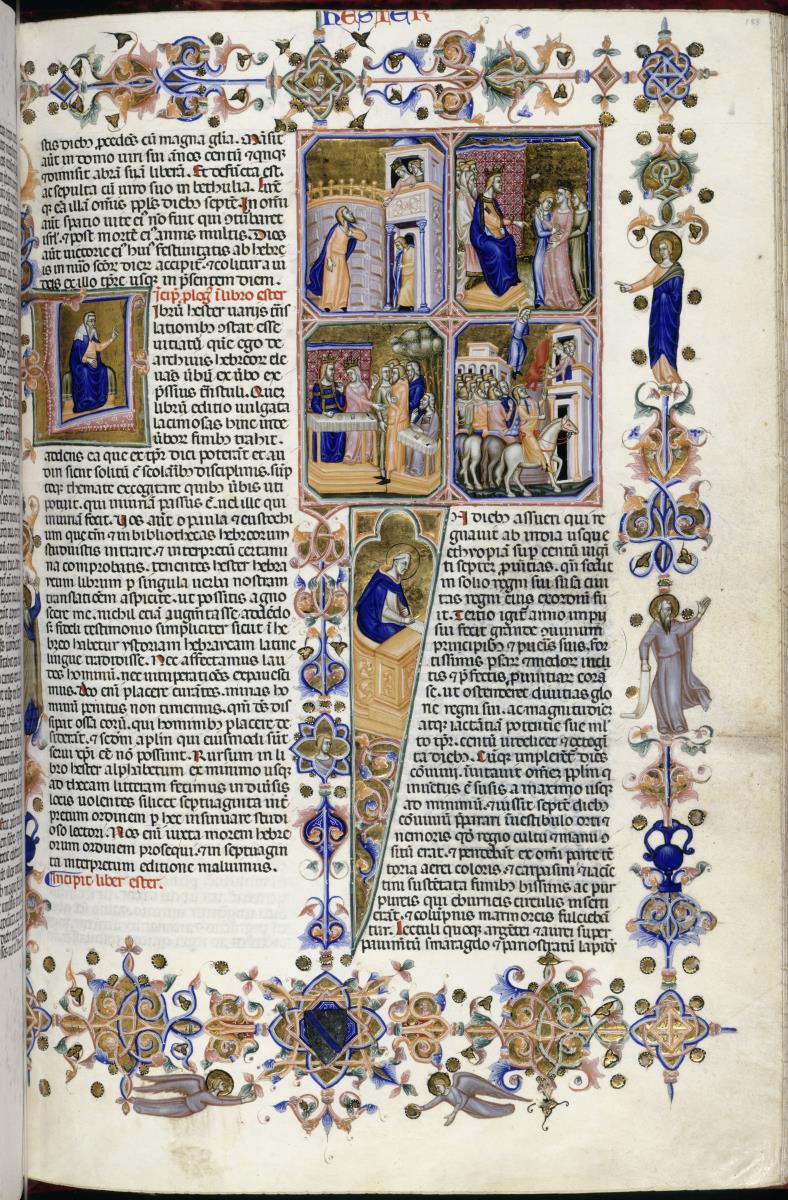 HESTER
stis dieb; p̄cedēs cū magna gl̄ia. Māsit
aūt in domo viri sui ānos centū & quīq;
& dimisit abrā suā liberā. Et defūcta est.
ac sepulta cū viro suo in bethulia. Luxit
q; eā illā om̄is pp̄ls dieb; septē. In om̄i
aūt spatio uite ei; nō fuit qui
isr̄l. & post mortē ei; annis multis. Dies
aūt victorie ei; hui; festiuitatis ab hebre
is in nūo sc̄or dier accipit̄. & colitur a iu
deis ex illo tp̄re usq; in p̄sentem diem.
Incip̄ plog; ī libro ester
Librū hester uarijs t̄ns
lationib; ostat esse
uitiatū que ego de
archiuis hebreor ele
uās ūbū ex ūbo ex
p̄ssius t̄nstuli. Quez
librū editio uulgata
lacinosas hinc inde
ūbor funib; trahit.
addens ea que ex tp̄r dici poterāt et au
diri sicut solitū ē scolarib; disciplinis. sūp
toq; themate excogitare quib; ūbis uti
potuit. qui iniuriam passus ē. uel ille qui
iniuriā fecit. Uos aūt o paula & eustochi
um qm̄ & in bibliothecas hebreorum
studuistis intrare. & interpretū certami
na comprobatis. tenentes hester hebra
icum librum p singula uerba nostram
translationem aspicite. ut possitis agno
scere me. nichil etiā augm̄tasse addēdo
s; fideli testimonio simpliciter sicut ī he
breo habetur ystoriam hebraicam latine
lingue tradidisse. Nec affectamus lau
des hominū. nec uituperatiōes expauesci
mus. Deo enī placere curātes. minas ho
minū penitus non timemus. qm̄ ds̄ dis
sipat ossa eorū. qui hominib; placere de
siderāt. & sc̄dm aplm qui eiusmodi sūt
serui xp̄i eē nō possunt. Rursum in li
bro hester alphabetum ex minimo usq;
ad thecam litteram fecimus in diūsis
locis uolentes silicet septuaginta int̄
pretum ordinem p hec insinuare studi
oso lectori. Nos enī iuxta morem hebre
orum ordinem prosequi. & in septuagin
ta interpretum editione maluimus.
Incipit liber ester.
In dieb; assueri qui re
gnauit ab india usque
ethyopiā sup centū uigī
ti septez p̄uintias. qn̄ sedit
in solio regni sui. susa ciui
tas regni eius exordiū fu
it. Tertio igit̄ anno impij
sui fecit grande cuiuium
principib; & pueris suis. for
tissimis psar & medor incli
tis & p̄fectis. p̄uintiar corā
se. ut ostenderet diuitias glo
rie regni sui. ac magnitudiez
atq; iactātiā potentie sue ml̄
to tp̄r. centū uidelicet & octogī
ta dieb;. Cūq; implerent̄ dies
cōuiuij. inuitauit om̄ez pplm q
inuētus ē susis a maximo usq;
ad minimū. & iussit septē dieb;
cōuiuiū p̄parari ī uestibulo orti &
nemoris qd̄ regio cultu & manu o
situ erat. & pendebāt ex om̄i parte tē
toria aerei coloris & carpasini & iacīc
tini sustētata funib; bissinis ac pur
pureis qui eburneis circulis inserti
erāt. & colupnis marmoreis fulciebā
tur. Lectuli quoq; argētei & aurei super
pauimētū smaragdo & pario stratū lapide